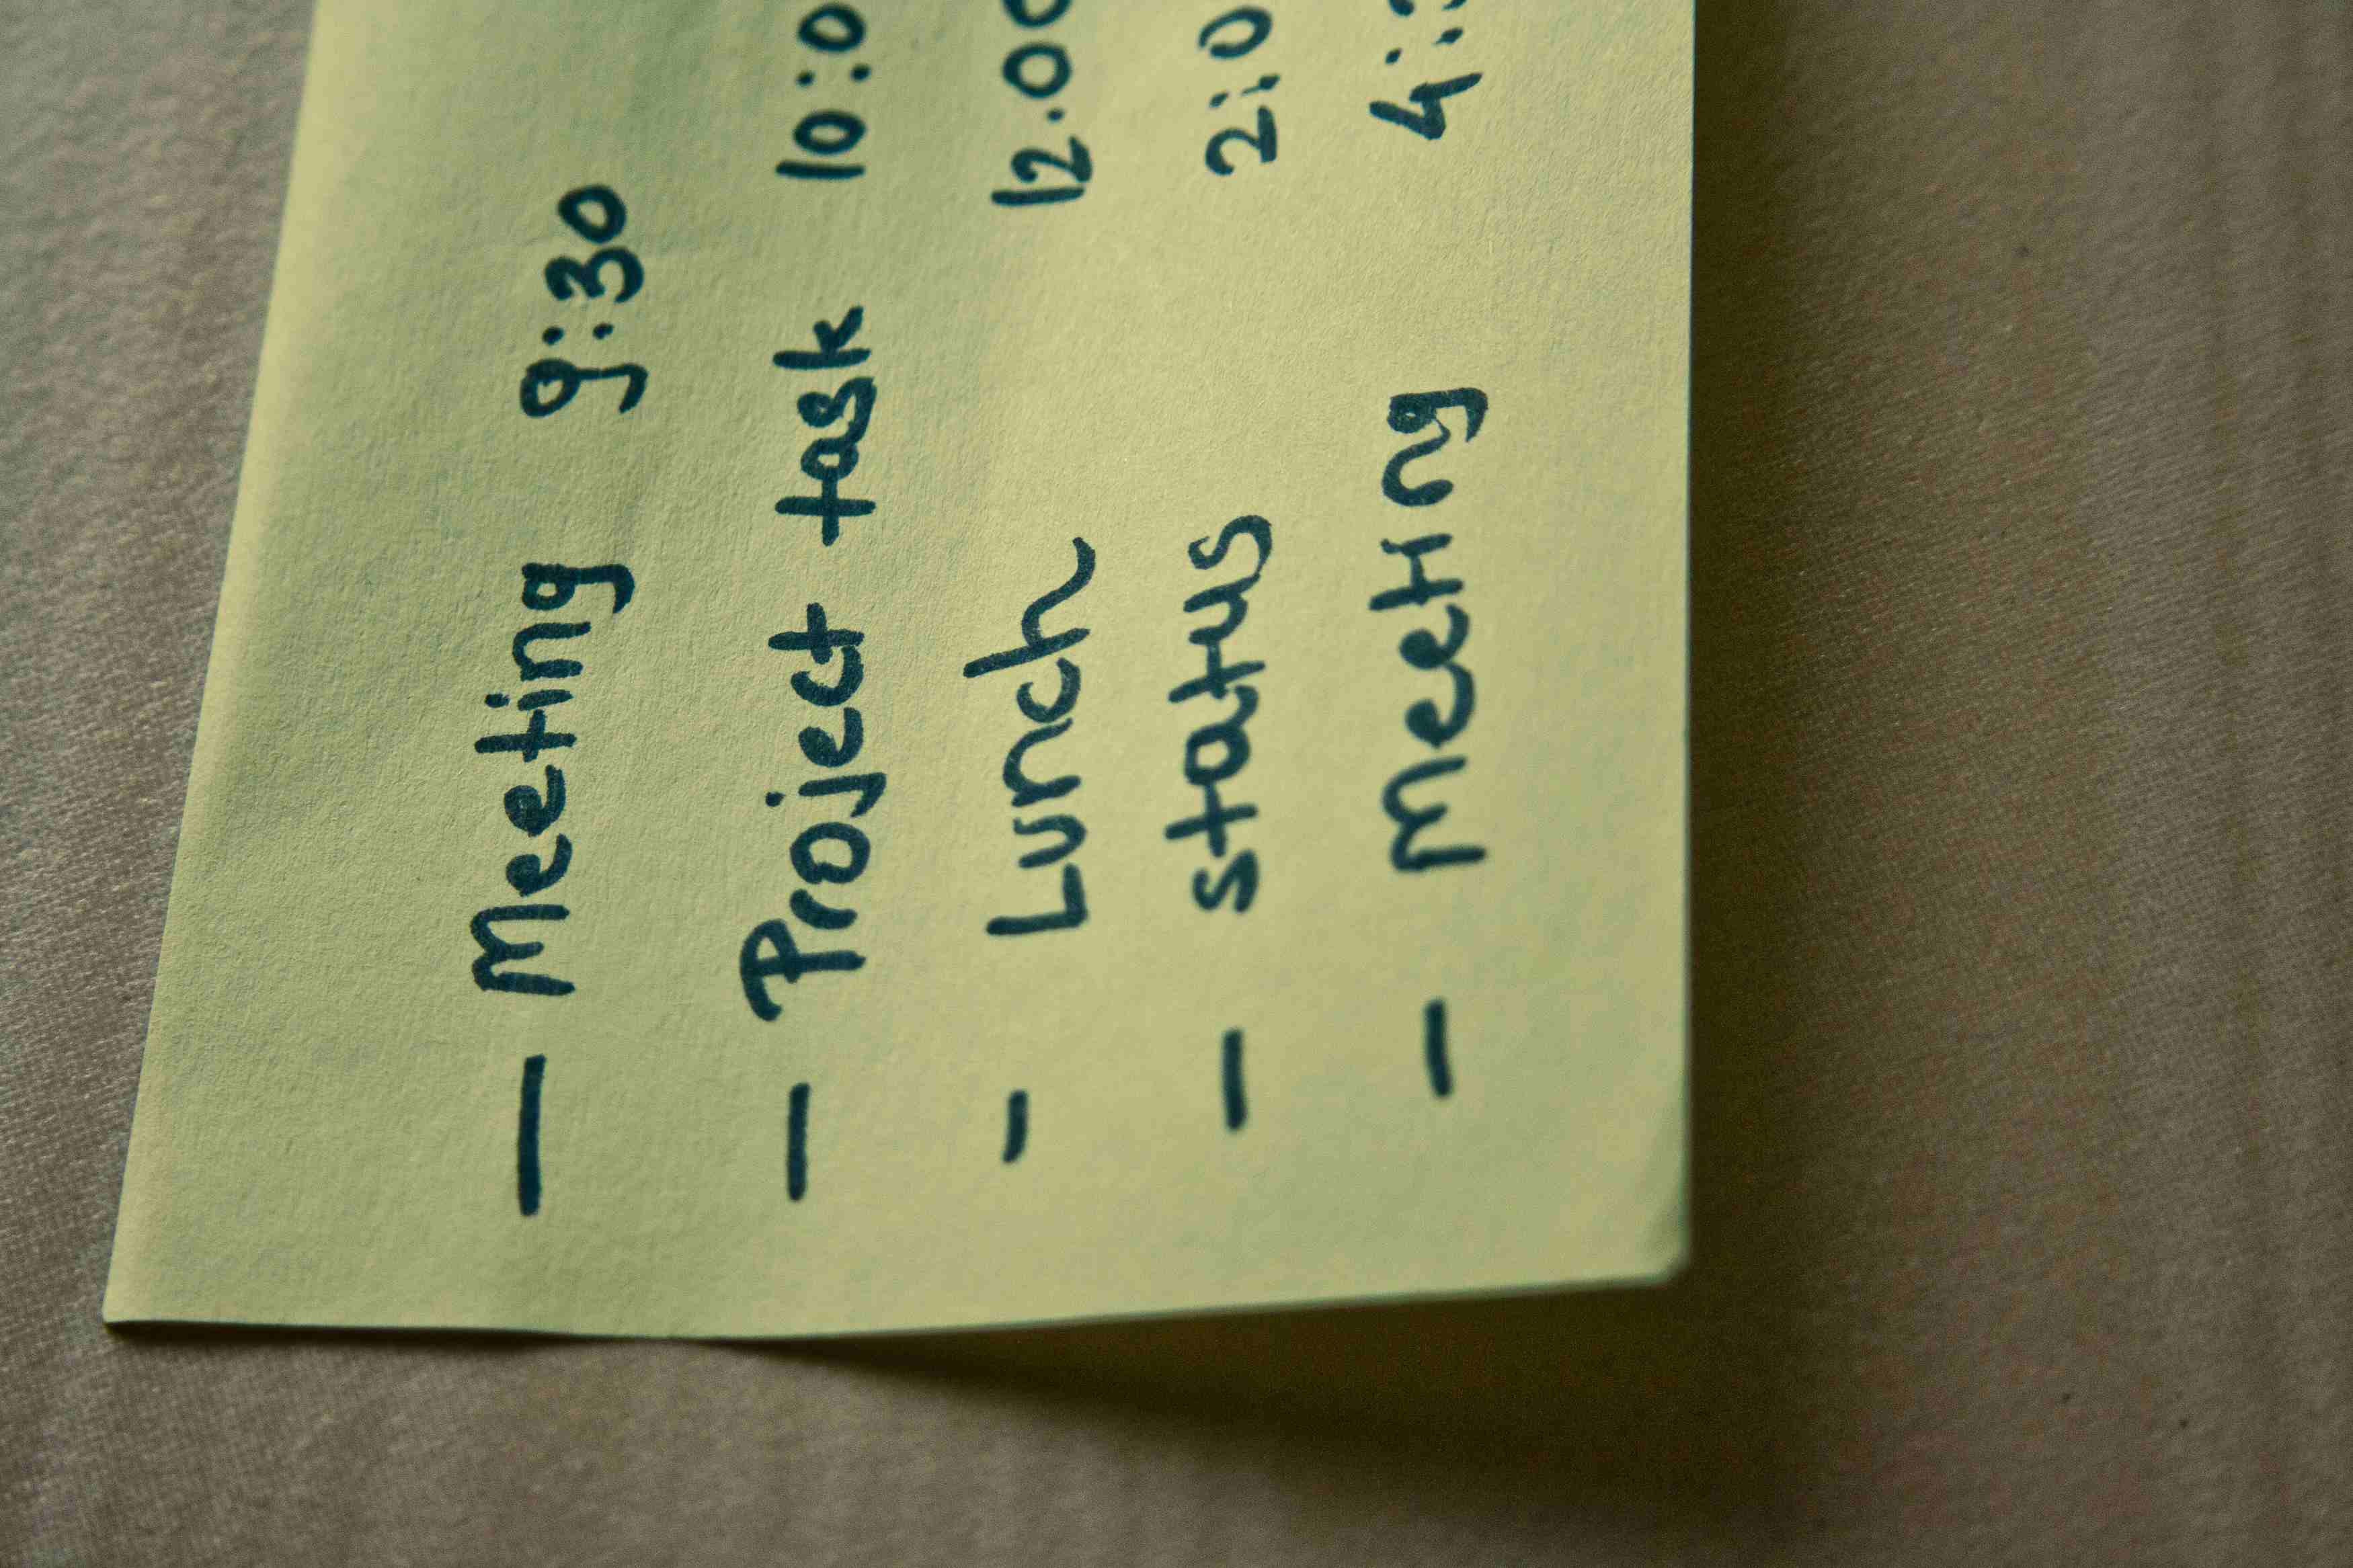 — Meeting 9:30
— Project task 10:0
- Lunch 12.00
— status 2:0
— Meeting 4: